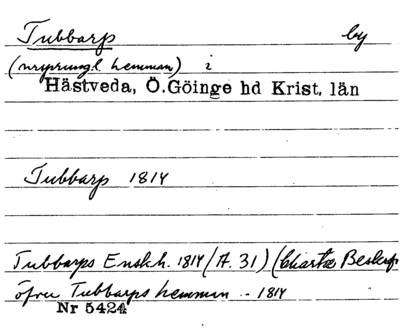 Tubbarp by
(ursprungl hemman) i
Hästveda, Ö.Göinge hd Krist. län
Tubbarp 1814
Tubbarps Enskh. 1814 (A. 31) (Charta Beskrifn
öfver Tubbarps hemman .. 1814
Nr 5424